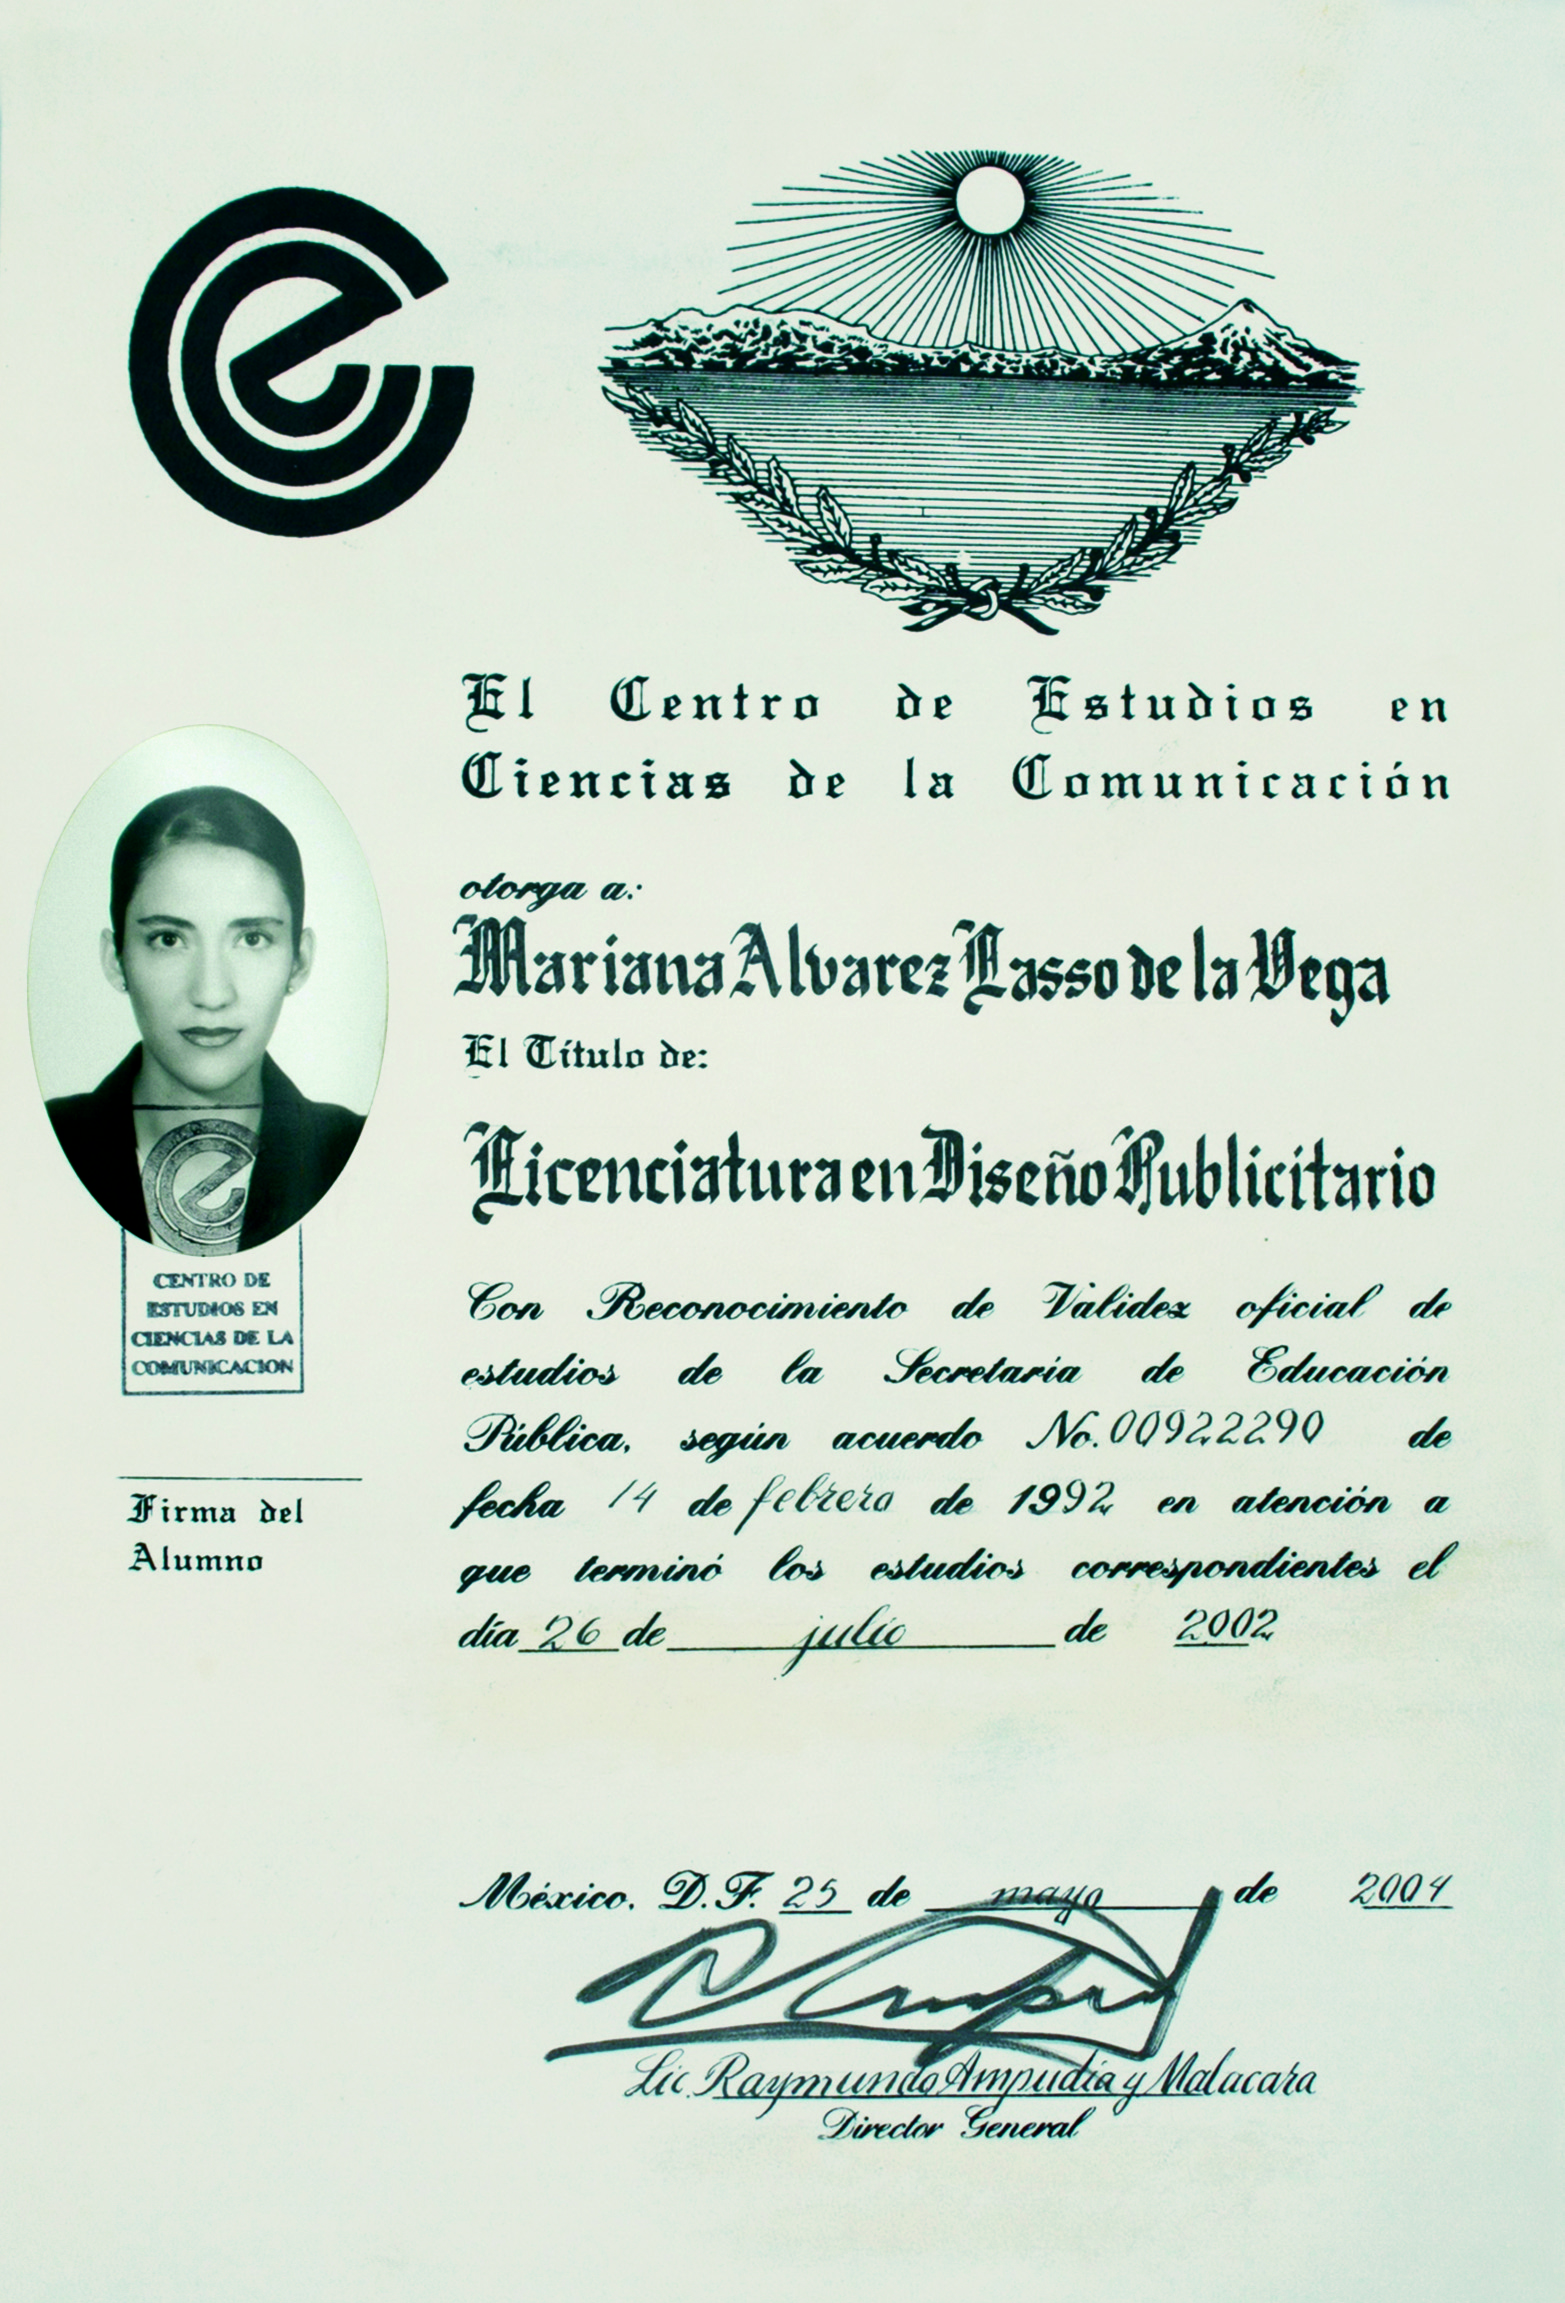 El Centro de Estudios en
Ciencias de la Comunicación
otorga a:
Mariana Alvarez Lasso de la Vega
El Título de:
Licenciatura en Diseño Publicitario
Con Reconocimiento de Validez oficial de
estudios de la Secretaría de Educación
Pública, según acuerdo No. 00922290 de
fecha 14 de febrero de 1992 en atención a
que terminó los estudios correspondientes el
día 26 de julio de 2002
CENTRO DE
ESTUDIOS EN
CIENCIAS DE LA
COMUNICACION
Firma del
Alumno
México, D.F. 25 de mayo de 2004
Lic. Raymundo Ampudia y Malacara
Director General